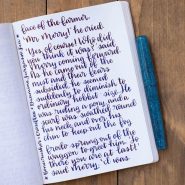 face of the farmer.
"Mr. Merry!" he cried.
"Yes, of course! Who did
you think it was?" said
Merry coming forward.
As he came out of the
mist and their fears
subsided, he seemed
suddenly to diminish to
ordinary hobbit-size. He
was riding a pony, and a
scarf was swathed round
his neck and over his
chin to keep out the fog.
Frodo sprang out of the
waggon to greet him. "So
there you are at last!"
said Merry. "I was